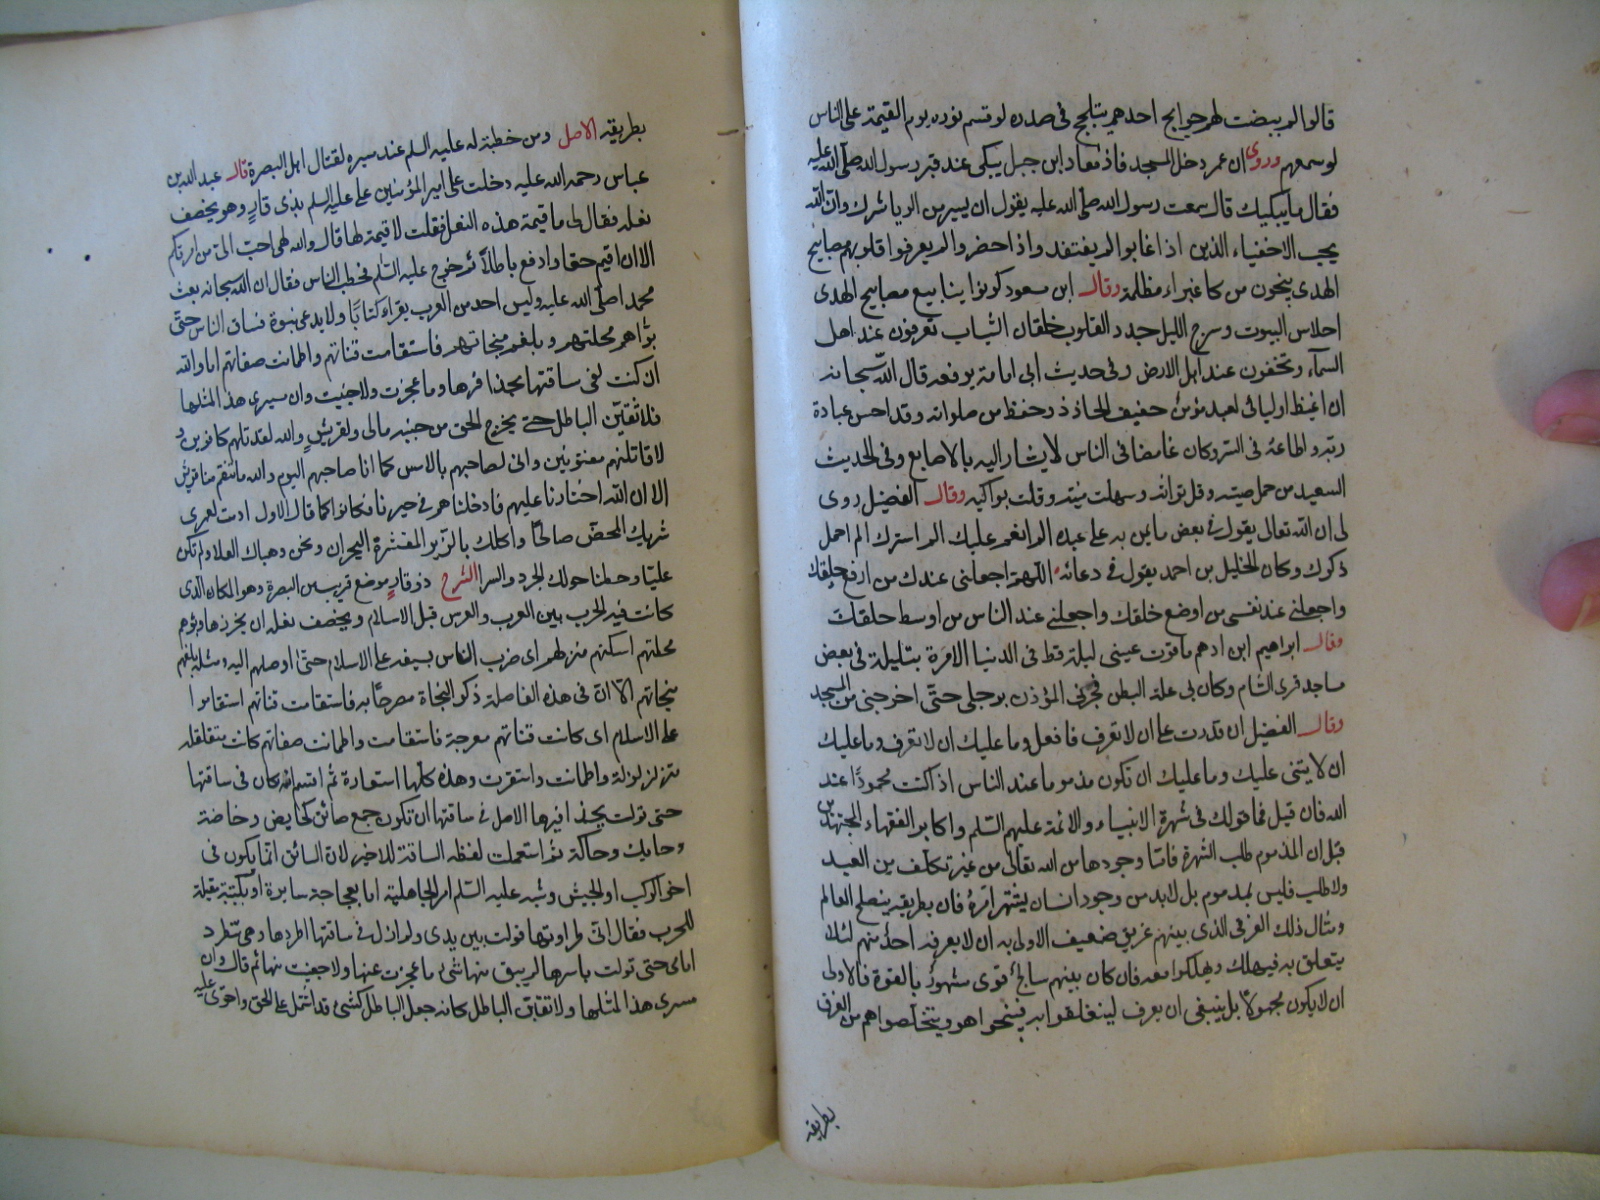 قالوا لم يبضت لهم حوايج احدهم يتلجلج في صدره لو قسم نوره يوم القيمة على الناس
لوسعهم وروى ان عمر دخل المسجد فاذ معاد ابن جبل يبكى عند قبر رسول الله صلى الله عليه
فقال ما يبكيك قال سمعت رسول الله صلى الله عليه يقول ان يسير من الريا شرك وان الله
يحب الاخفياء الذين اذا غابوا لم يفتقد واذا حضروا لم يعرفوا قلوبهم مصابيح
الهدى ينجون من كل غبراء مظلمة وقال ابن مسعود كونوا ينابيع مصابيح الهدى
احلاس البيوت وسرج الليل جدد القلوب خلقان الثياب تعرفون عند اهل
السمآء وتخفون عند اهل الارض وفى حديث ابى امامة يرفعه قال الله سبحانه
ان اغبط اوليائى لعبد مؤمن خفيف الحاذ ذو حفظ من صلوانه وقد احسن عبادة
ربه واطاعه في السر وكان غامضا في الناس لا يشار اليه بالاصابع وفى الحديث
السعيد من خمل صيته وقل تراثه وسهلت منيته وقلت بواكيه وقال الفضيل روى
لى ان الله تعالى يقول في بعض ما يمن به على عبده الم انعم عليك الم استرك الم اخمل
ذكرك وكان الخليل بن احمد يقول في دعائه اللهم اجعلنى عندك من ارفع خلقك
واجعلنى عند نفسى من اوضع خلقك واجعلنى عند الناس من اوسط خلقك
وقال ابراهيم ابن ادهم ما قرت عينى ليلة قط فى الدنيا الا مرة بت ليلة فى بعض
مساجد قرى الشام وكان بى علة البطن فجرنى المؤذن برجلى حتى اخرجنى من المسجد
وقال الفضيل ان قدرت على ان لا تعرف فافعل وما عليك ان لا تعرف وما عليك
ان لا يثنى عليك وما عليك ان تكون مذموما عند الناس اذ اكنت محمودا عند
الله فان قيل فما قولك فى شهرة الانبياء والائمة عليهم السلم واكابر الفقهاء المجتهدين
قيل ان المذموم طلب الشهرة فاما وجودها من الله تعالى من غير تكلف من العبد
ولا طلب فليس بمذموم بل لابد من وجود انسان يشتهر امره فان بطريقه ينصلح العالم
ومثال ذلك الغرقى الذى بينهم غريق ضعيف الاولى به ان لا يعرفه احد منهم لئلا
يتعلق به فيهلك ويهلكوا معه فان كان بينهم سابح قوى مشهور بالقوة فالاولى
ان لا يكون مجهولا بل ينبغى ان يعرف ليتعلقوا به فينجوا هو ويتخلصوا هم من الغرق
بطريقه
بطريقه الاصل ومن خطبة له عليه السلم عند سيره لقتال اهل البصرة قال عبد الله بن
عباس رحمه الله عليه دخلت على امير المؤمنين على عليه السلم بذى قار وهو يخصف
نعله فقال لى ما قيمة هذه النعل فقلت لا قيمة لها قال والله لهى احب الى من امرتكم
الا ان اقيم حقا وادفع باطلا ثم خرج عليه السلم فخطب الناس فقال ان الله سبحانه بعث
محمد اصلى الله عليه وليس احد من العرب يقراء كتابا ولا يدعى نبوة فساق الناس حتى
بوأهم محلتهم وبلغهم منجاتهم فاستقامت قناتهم واطمانت صفاتهم اما والله
ان كنت لفى ساقتها بحذا فرها وما عجزت ولا جنيت وان مسيرى هذا لمثلها
فلا ثقبن الباطل حتى يخرج الحق من جنبه مالى ولقريش والله لقد قتلتهم كافرين و
لاقاتلنهم مفتونين وانى لصاحبهم بالامس كما انا صاحبهم اليوم والله ما تنقم منا قريش
الا ان الله اختارنا عليهم فادخلناهم فى خيرنا فكانوا كما قال الاول ادمت لعمرى
شربك المحض صالحا واكلك بالزبد المقشرة البجران ونحن وهبناك العلا ولم تكن
عليا وحطنا حولك الجرد والسرا الشرح ذو قار موضع قريب من البصرة وهو المكان الذى
كانت فيه الحرب بين العرب والعرس قبل الاسلام ويخصف نعله ان يخرزها وبوأهم
محلتهم اسكنهم منزلهم اى ضرب الناس بسيفه على الاسلام حتى اوصلهم اليه ومثله بلغهم
منجاتهم الا ان فى هذه الفاصلة ذكر النجاة مصرحا به فاستقامت قناتهم استقاموا
على الاسلام اى كانت قناتهم معوجة فاستقامت واطمانت صفاتهم كانت متقلقله
متزلزلة واطمانت واستقرت وهذه كلها استعارة ثم اقسم انه كان فى ساقتها
حتى تولت بحذافيرها الاصل فى ساقتها ان تكون جمع سائق كحايض وحاضة
وحايك وحاكة ثم استعملت لفظه الساقة للاخير لان السائق انما يكون فى
اخر الركب او الجيش وشبه عليه السلم امر الجاهلية اما بعجاجة سايرة او بكتيبة مقبلة
للحرب فقال انى طراوتها فولت بين يدى ولم ازل فى ساقتها اطردها وهى تنطرد
امامى حتى تولت باسرها لم يبق منها شئ ما عجزت عنها ولا جبنت منها ثم قال وان
مسرى هذا لمثلها ولا ثقبن الباطل كانه جعل الباطل كشئ قد اشتمل على الحق واحتوى عليه